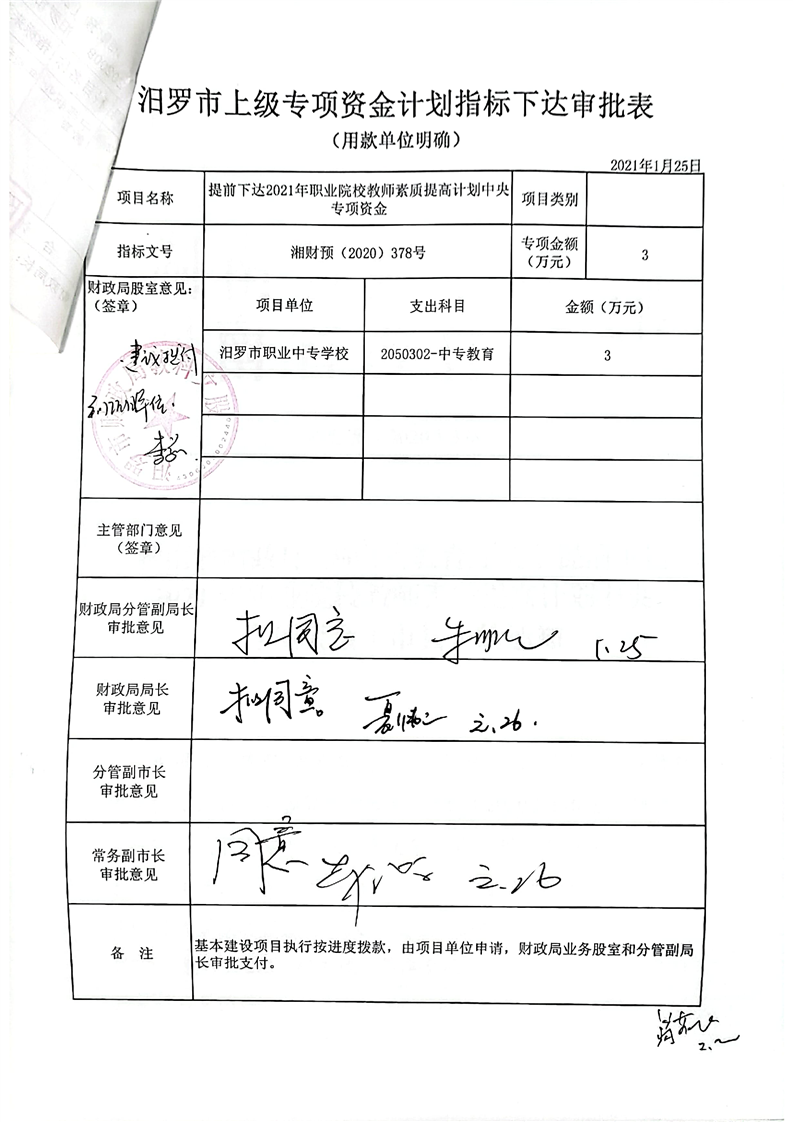 汨罗市上级专项资金计划指标下达审批表
（用款单位明确）
2021年1月25日
项目名称
提前下达2021年职业院校教师素质提高计划中央
专项资金
项目类别
指标文号
湘财预（2020）378号
专项金额
（万元）
3
财政局股室意见：
（签章）
项目单位
支出科目
金额（万元）
汨罗市职业中专学校
2050302-中专教育
3
建议拨付
单位.
主管部门意见
（签章）
财政局分管副局长
审批意见
拟同意
1.25
财政局局长
审批意见
拟同意
分管副市长
审批意见
常务副市长
审批意见
同意
备 注
基本建设项目执行按进度拨款，由项目单位申请，财政局业务股室和分管副局
长审批支付。